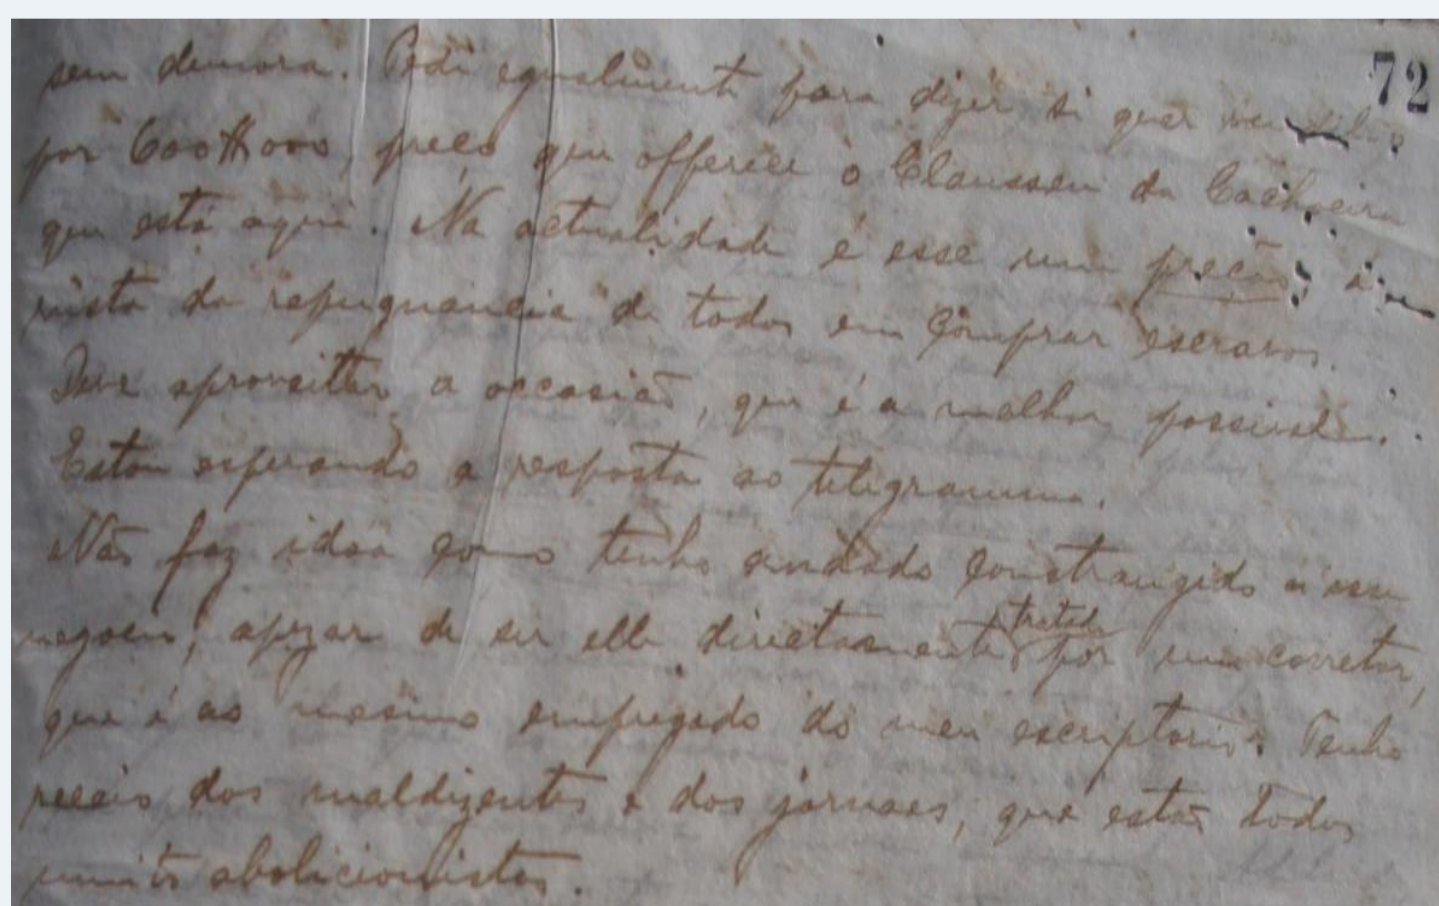 72
sem demora. Pedi egualmente para dizer si quer
por 600$000, preço que offerece o Claussen da Cachoeira
que está aqui. Na actualidade é esse um preção, á
vista da repugnancia de todos em comprar escravos.
Deve aproveittar a occasião, que é a melhor possivel.
Estou esperando a resposta ao telegramma.
Não faz idea como tenho andado constrangido n'esse
negocio, apezar de ser elle directamente tratado por um corretor,
que é ao mesmo empregado do meu escriptorio. Tenho
receio dos maldizentes e dos jornaes, que estão todos
muito abolicionistas.